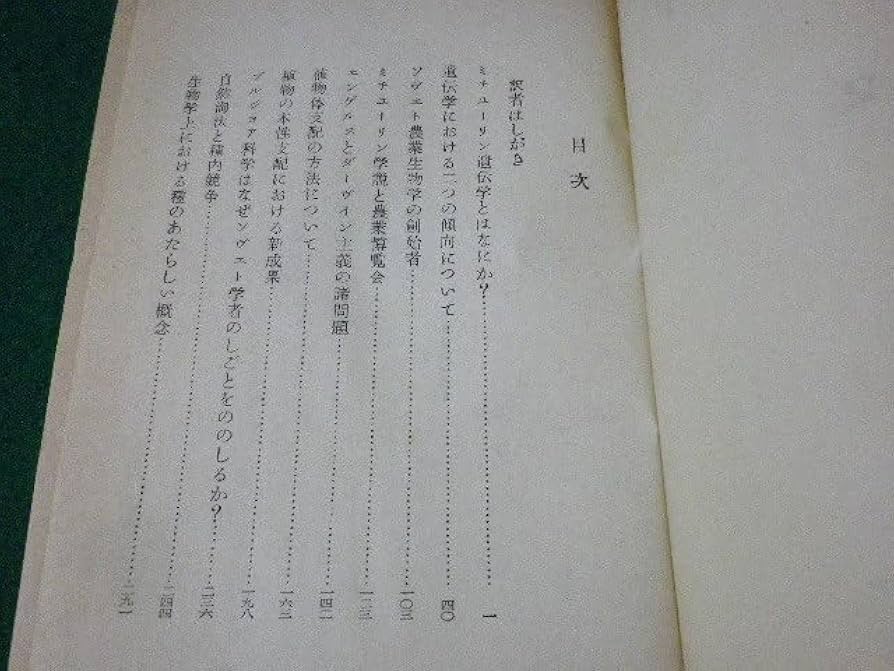 目次
訳者はしがき
ミチユーリン遺伝学とはなにか?……一
遺伝学における二つの傾向について……四〇
ソヴェト農業生物学の創始者……一〇三
ミチユーリン学説と農業博覧会……一二三
エンゲルスとダーウイン主義の諸問題……一四二
植物体支配の方法について……一六三
植物の本性支配における新成果……一九八
ブルジョア科学はなぜソヴェト学者のしごとをののしるか?……二三六
自然淘汰と種内競争……二四四
生物学上における種のあたらしい概念……二九一